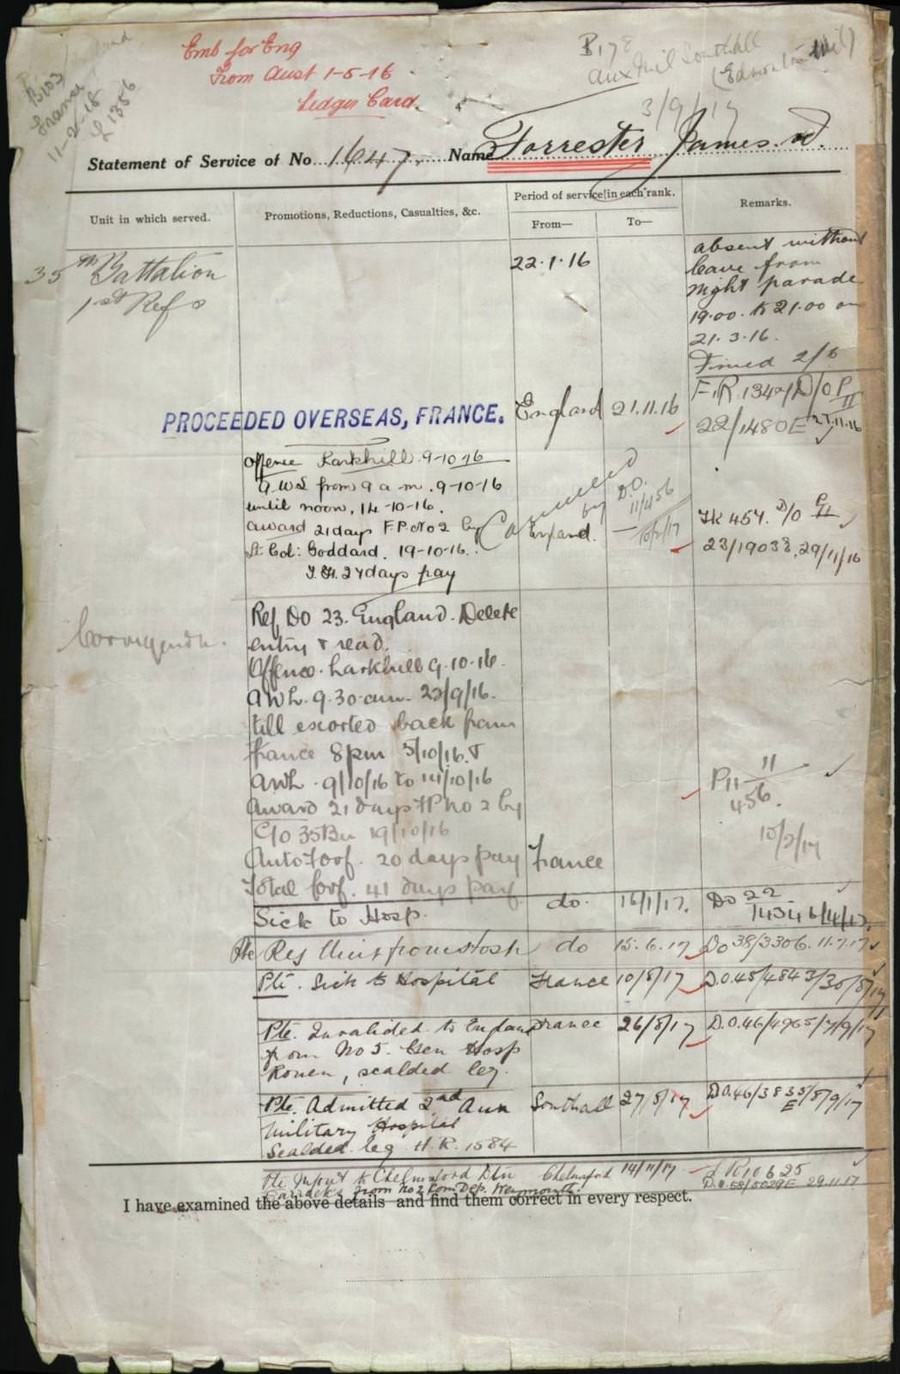 Emb for Eng
From Aust 1-5-16
Ledger Card.
B178
Aux Mil Southall
3/9/17
B103
France
11-2-18
L 1356
Statement of Service of No. 1647. Name Forrester James W.
Unit in which served.
Promotions, Reductions, Casualties, &c.
Period of service in each rank.
From—
To—
Remarks.
35th Battalion
1st Refs
22.1.16
absent without
leave from
night parade
19.00. to 21.00 on
21.3.16.
Fined 2/6
PROCEEDED OVERSEAS, FRANCE.
England 21.11.16
22/1480E 27.11.16
Offence Larkhill 9-10-16
A.W.L from 9 a.m. 9-10-16
until noon, 14-10-16.
award 21 days F.P. No 2 by
Lt. Col: Goddard. 19-10-16.
T.F. 27 days pay
Cancelled
by D.O.
11/456
10/2/17
England.
457. D/O
23/19038, 29/11/16
Corrigenda.
Ref DO 23. England. Delete
entry & read.
Offence. Larkhill 9.10.16.
AWL. 9.30 am. 23/9/16.
till escorted back from
France 8pm 5/10/16. &
AWL. 9/10/16 to 14/10/16
Award 21 days FP No 2 by
C/o 35Bn 19/10/16
Auto Forf. 20 days pay
Total forf. 41 days pay
P11 11
456
10/2/17
France
Sick to Hosp.
do. 16/1/17.
Do 22
Pte Rej Unit from Hosp do 15.6.17 Do 38/3306. 11.7.17
Pte. Sick to Hospital France 10/8/17 D.O.45/4843/30/8/17
Pte. Invalided to England France 26/8/17 D.O.46/4965/7/9/17
from No 5. Gen Hosp
Rouen, scalded leg.
Pte. Admitted 2nd Aux Southall 27/8/17 D.O.46/3835/8/9/17
E
Military Hospital
Scalded leg H.R. 1584
Chelmsford 14/11/17
from No 2 Com Dep. Weymouth
29.11.17
I have examined the above details and find them correct in every respect.